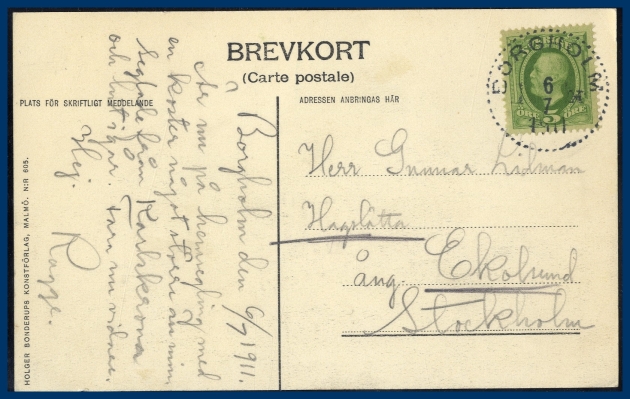 BREVKORT
(Carte postale)
PLATS FÖR SKRIFTLIGT MEDDELANDE
ADRESSEN ANBRINGAS HÄR
BORGHOLM
6
7
5
ÖRE ÖRE
Borgholm den 6/7 1911.
Är nu på hemsegling med
en koster något större än min,
seglade från Karlskrona
och hit igår. fara nu vidare.
Hej.
Ragge.
Herr Gunnar Lidman
Hagalötta
ång. Ekolsund
Stockholm
HOLGER BONDERUPS KONSTFÖRLAG, MALMÖ. N:R 605.